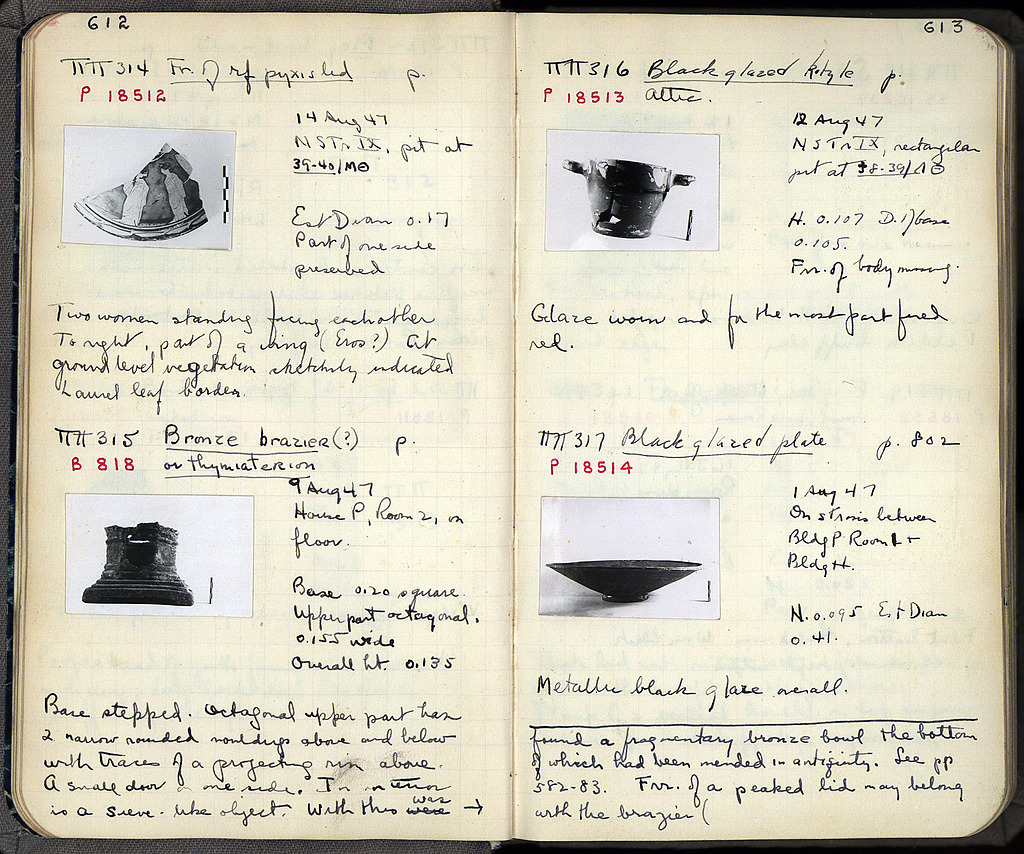 612
ΠΠ 314 Fr. of rf pyxis lid p.
P 18512
14 Aug 47
NSTr. IX, pit at
39-40/ΜΘ
Est Diam 0.17
Part of one side
preserved
Two women standing facing each other
To right, part of a wing (Eros?) At
ground level vegetation sketchily indicated
Laurel leaf border.
ΠΠ 315 Bronze brazier(?) p.
B 818
or thymiaterion
9 Aug 47
House P, Room 2, on
floor.
Base 0.20 square.
Upper part octagonal.
0.155 wide
Overall ht. 0.135
Base stepped. Octagonal upper part has
2 narrow rounded mouldings above and below
with traces of a projecting rim above.
A small door on one side. In interior
is a sieve-like object. With this was were →
613
ΠΠ 316 Black glazed kotyle p.
P 18513 Attic.
12 Aug 47
NSTr IX, rectangular
pit at 38-39/ΛΘ
H. 0.107 D. of base
0.105.
Frr. of body missing.
Glaze worn and for the most part fired
red.
ΠΠ 317 Black glazed plate p. 802
P 18514
1 Aug 47
On strosis between
Bldg P Room 1 +
Bldg H.
H. 0.095 Est Diam
0.41.
Metallic black glaze overall.
found a fragmentary bronze bowl the bottom
of which had been mended in antiquity. See pp
582-83. Frr. of a peaked lid may belong
with the brazier (